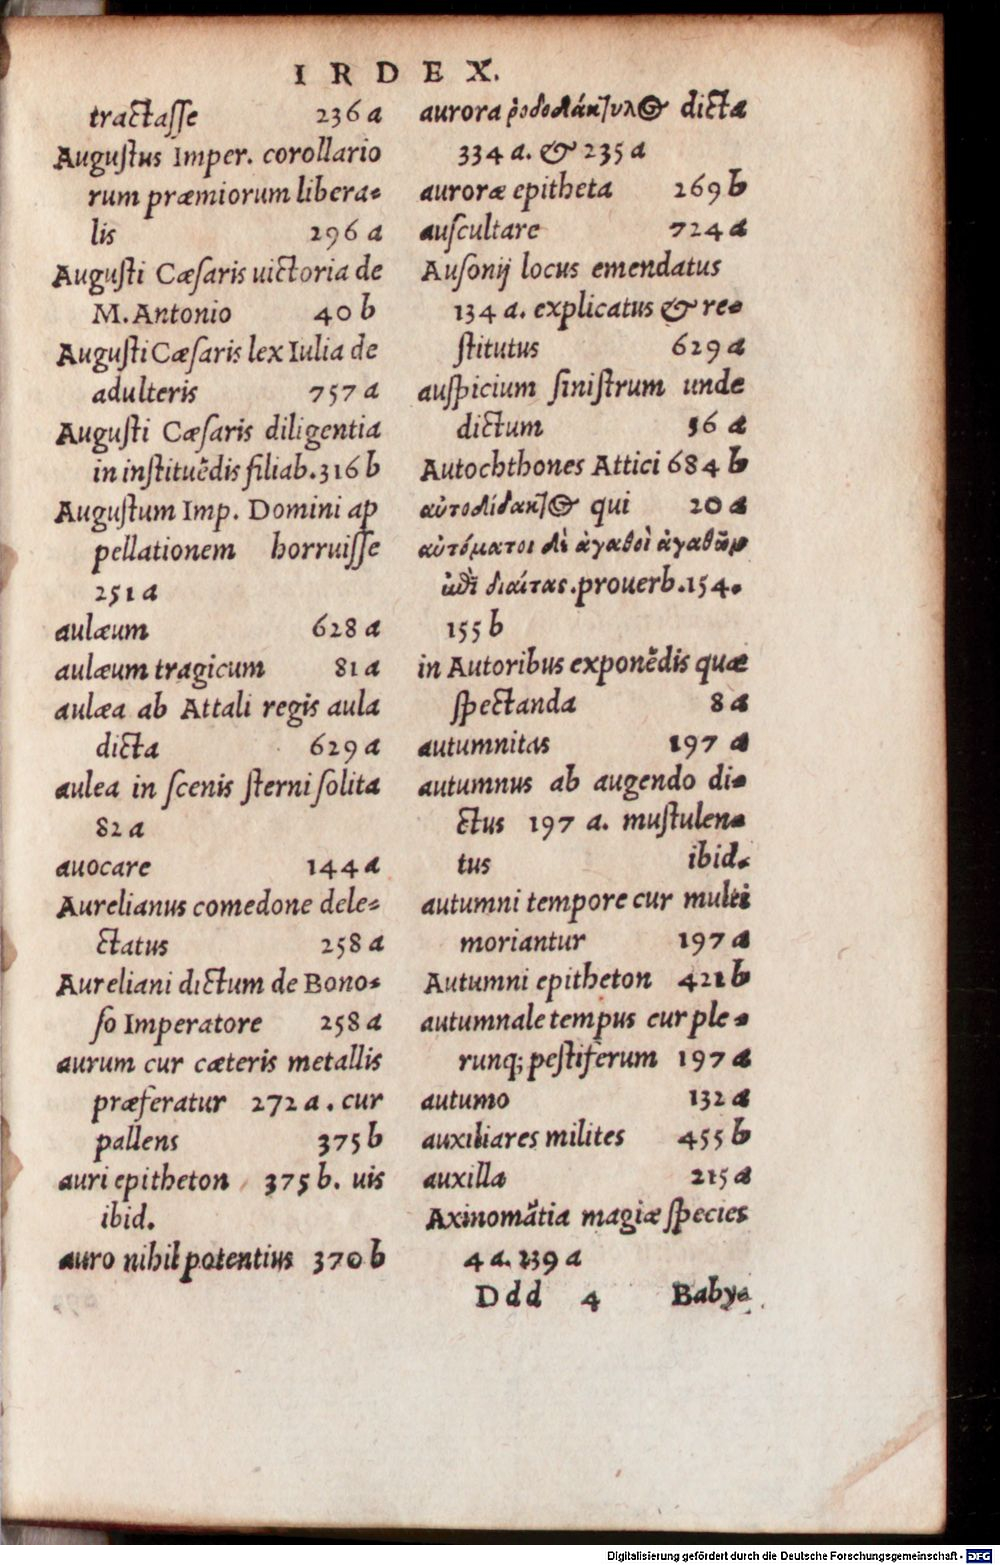 IRDEX.
tractasse 236 a
Augustus Imper. corollario
rum præmiorum libera-
lis 296 a
Augusti Cæsaris uictoria de
M. Antonio 40 b
Augusti Cæsaris lex Iulia de
adulteris 757 a
Augusti Cæsaris diligentia
in instituẽdis filiab. 316 b
Augustum Imp. Domini ap
pellationem horruisse
251 a
aulæum 628 a
aulæum tragicum 81 a
aulæa ab Attali regis aula
dicta 629 a
aulea in scenis sterni solita
82 a
auocare 144 a
Aurelianus comedone dele-
ctatus 258 a
Aureliani dictum de Bono-
so Imperatore 258 a
aurum cur cæteris metallis
præferatur 272 a. cur
pallens 375 b
auri epitheton 375 b. uis
ibid.
auro nihil potentius 370 b
aurora ῥοδοδάκτυλος dicta
334 a. & 235 a
auroræ epitheta 269 b
auscultare 724 a
Ausonij locus emendatus
134 a. explicatus & re-
stitutus 629 a
auspicium sinistrum unde
dictum 36 a
Autochthones Attici 684 b
αὐτοδίδακτος qui 20 a
αὐτόματοι δὲ ἀγαθοὶ ἀγαθῶν
ἐπὶ δαίτας. prouerb. 154.
155 b
in Autoribus exponẽdis quæ
spectanda 8 a
autumnitas 197 a
autumnus ab augendo di-
ctus 197 a. mustulen-
tus ibid.
autumni tempore cur multi
moriantur 197 a
Autumni epitheton 421 b
autumnale tempus cur ple-
runq; pestiferum 197 a
autumo 132 a
auxiliares milites 455 b
auxilla 215 a
Axinomãtia magiæ species
4 a. 239 a
Ddd 4 Baby-
Digitalisierung gefördert durch die Deutsche Forschungsgemeinschaft - DFG